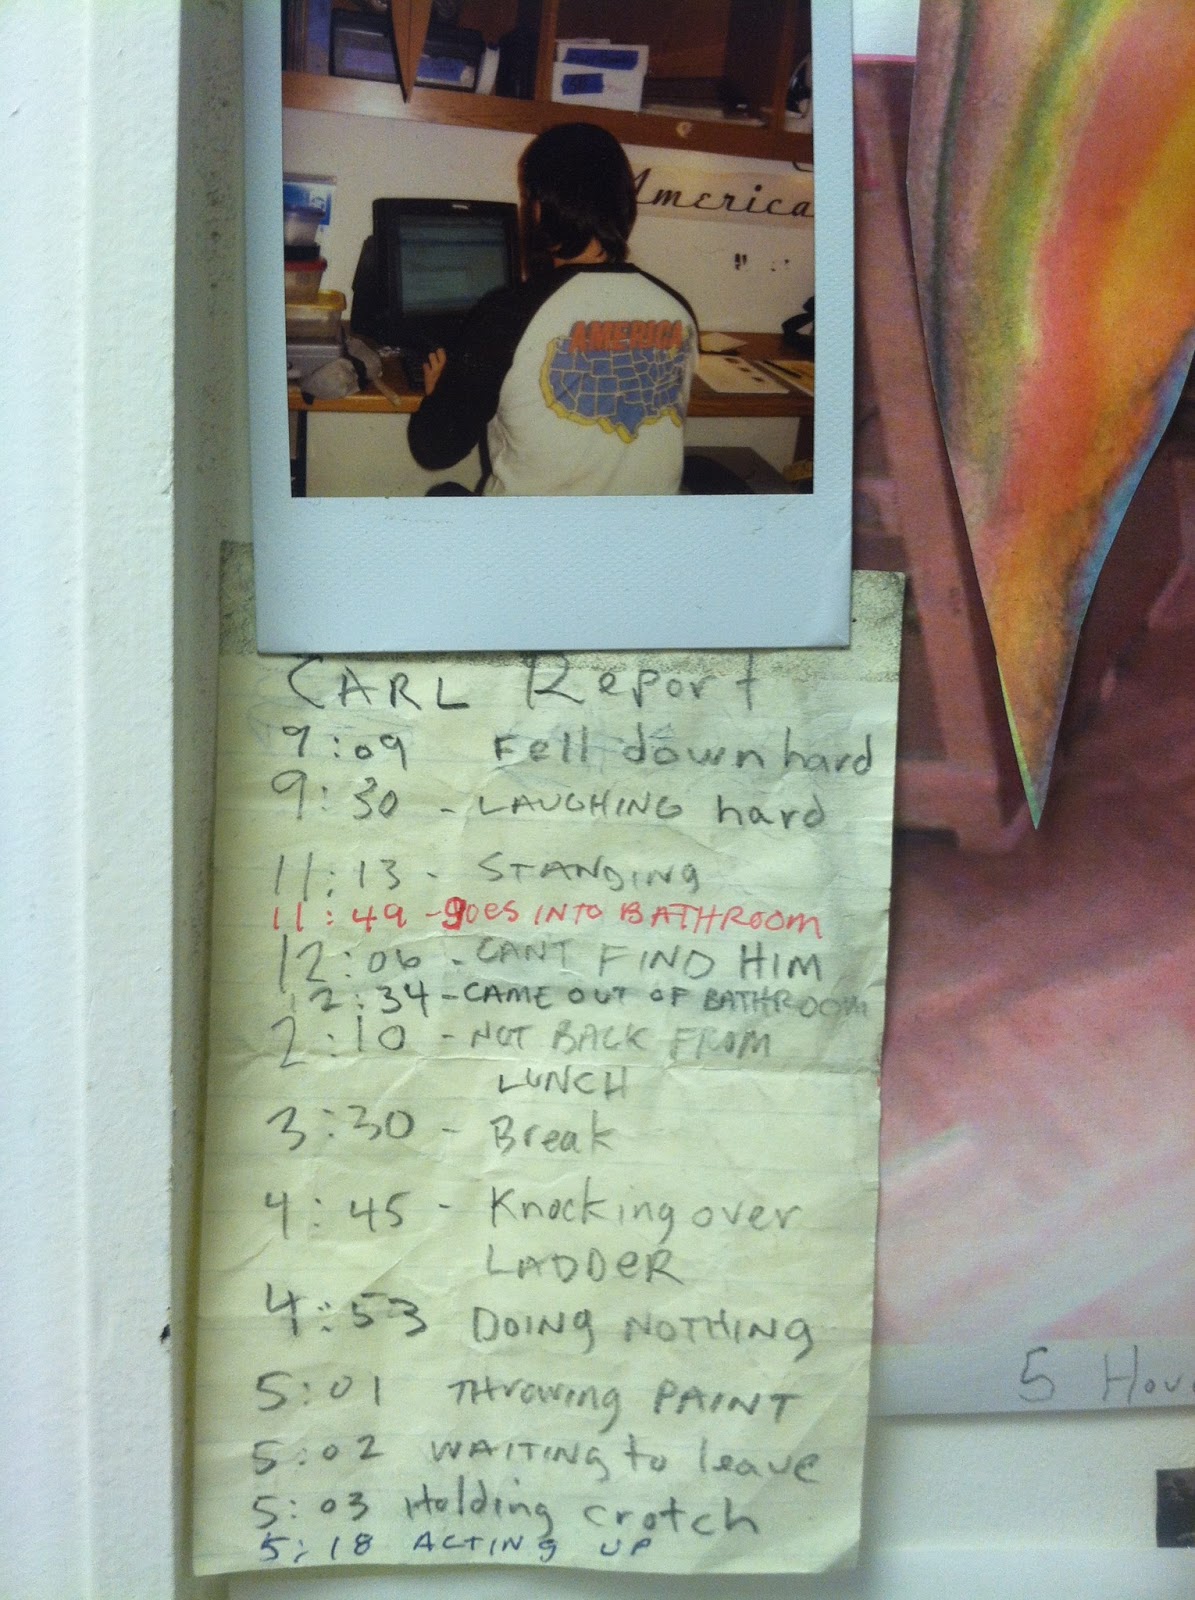 America
AMERICA
CARL Report
9:09 Fell down hard
9:30 - LAUGHING hard
11:13 - STANDING
11:49 - goes INTO BATHROOM
12:06 - CANT FIND HIM
12:34 - CAME OUT OF BATHROOM
2:10 - NOT BACK FROM
LUNCH
3:30 - Break
4:45 - Knocking over
LADDER
4:53 DOING NOTHING
5:01 THrowing PAINT
5:02 WAITING to leave
5:03 Holding crotch
5:18 ACTING UP
5 Hou